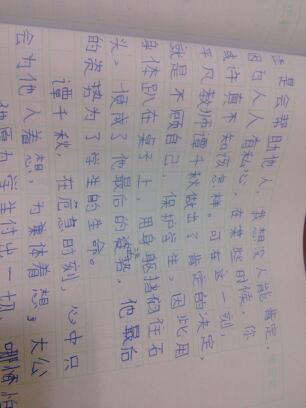 是会帮助他人，我想没人能肯定。
因为人人有私心，在某些时候，你
或许真不知该怎样。可在这一刻，
平凡教师谭千秋做出了肯定的决定，
就是不顾自己，保护学生，因此用
身体趴在桌子上，用身躯挡住石
头。顶成了他最后的姿势，他最后
的姿势为了学生的生命。
谭千秋，在危急时刻，心中只
会为他人着想，为集体着想，大公
为学生付出一切，哪怕